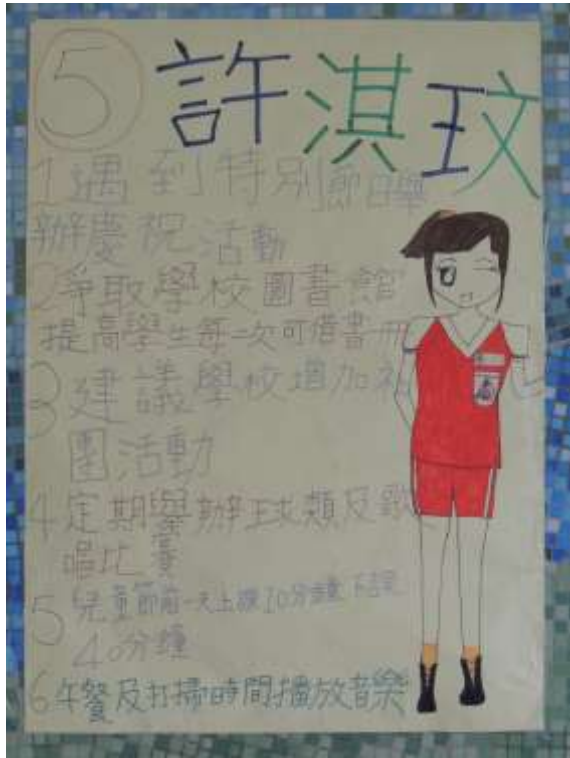 5 許淇玟
1遇到特別節日舉
辦慶祝活動
2爭取學校圖書館
提高學生每一次可借書冊
3建議學校增加社
團活動
4定期舉辦球類及歌
唱比賽
5兒童節前一天上課10分鐘 下課
40分鐘
6午餐及打掃時間播放音樂